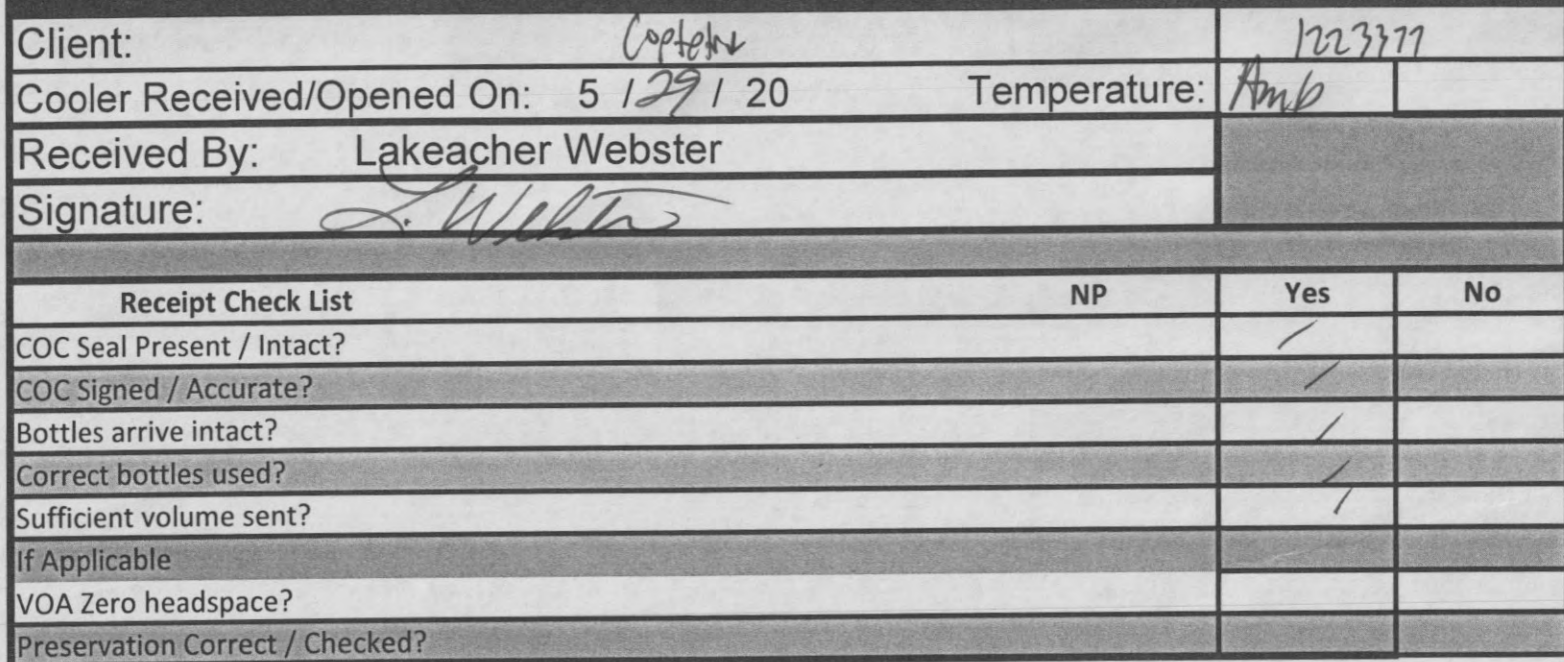 Client: 1223377
Cooler Received/Opened On: 5 / 29 / 20 Temperature: Amb
Received By: Lakeacher Webster
Signature: L. Webster
Receipt Check List NP Yes No
COC Seal Present / Intact? /
COC Signed / Accurate? /
Bottles arrive intact? /
Correct bottles used? /
Sufficient volume sent? /
If Applicable
VOA Zero headspace?
Preservation Correct / Checked?